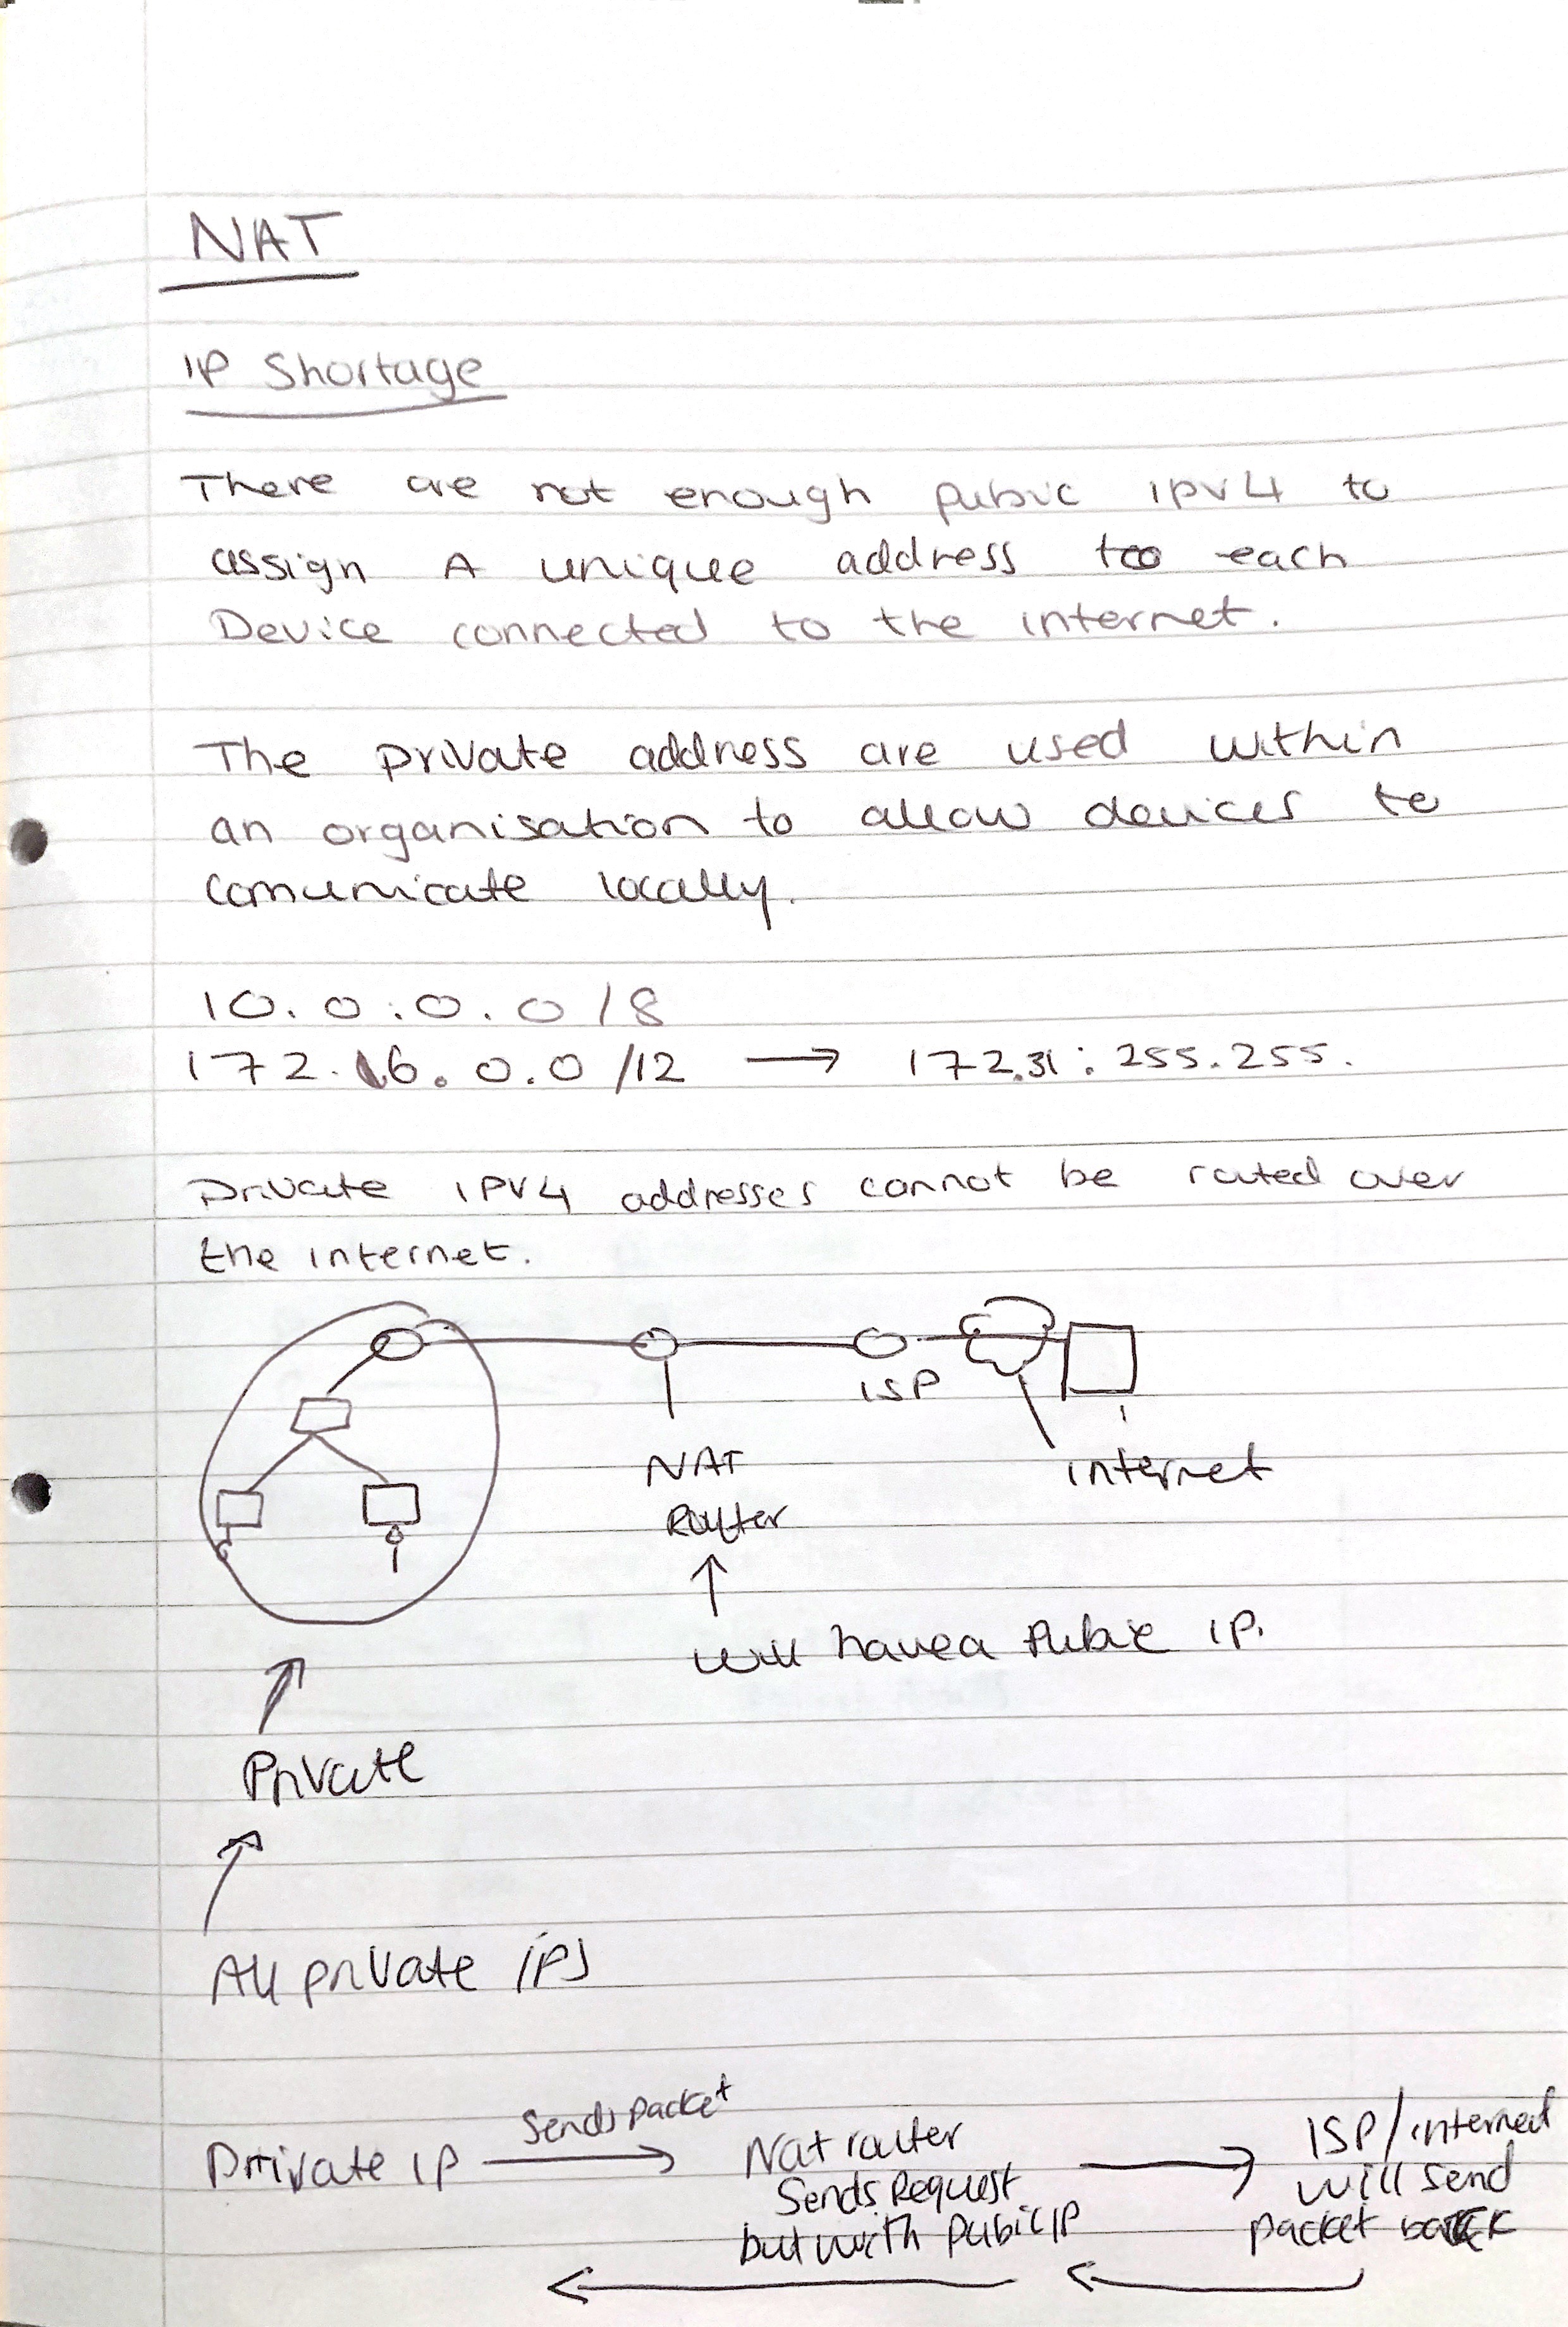 NAT
IP Shortage
There are not enough pubic ipv4 to
assign A unique address too each
Device connected to the internet.
The private address are used within
an organisation to allow devices to
comunicate locally.
10.0.0.0/8
172.16.0.0/12 → 172.31.255.255.
Private IPV4 addresses cannot be routed over
the internet.
ISP
NAT
Router
internet
Will have a Pubic IP.
Private
All private IPs
Sends packet
Private IP → Nat router → ISP/internet
Sends Request will send
but with pubic IP packet back